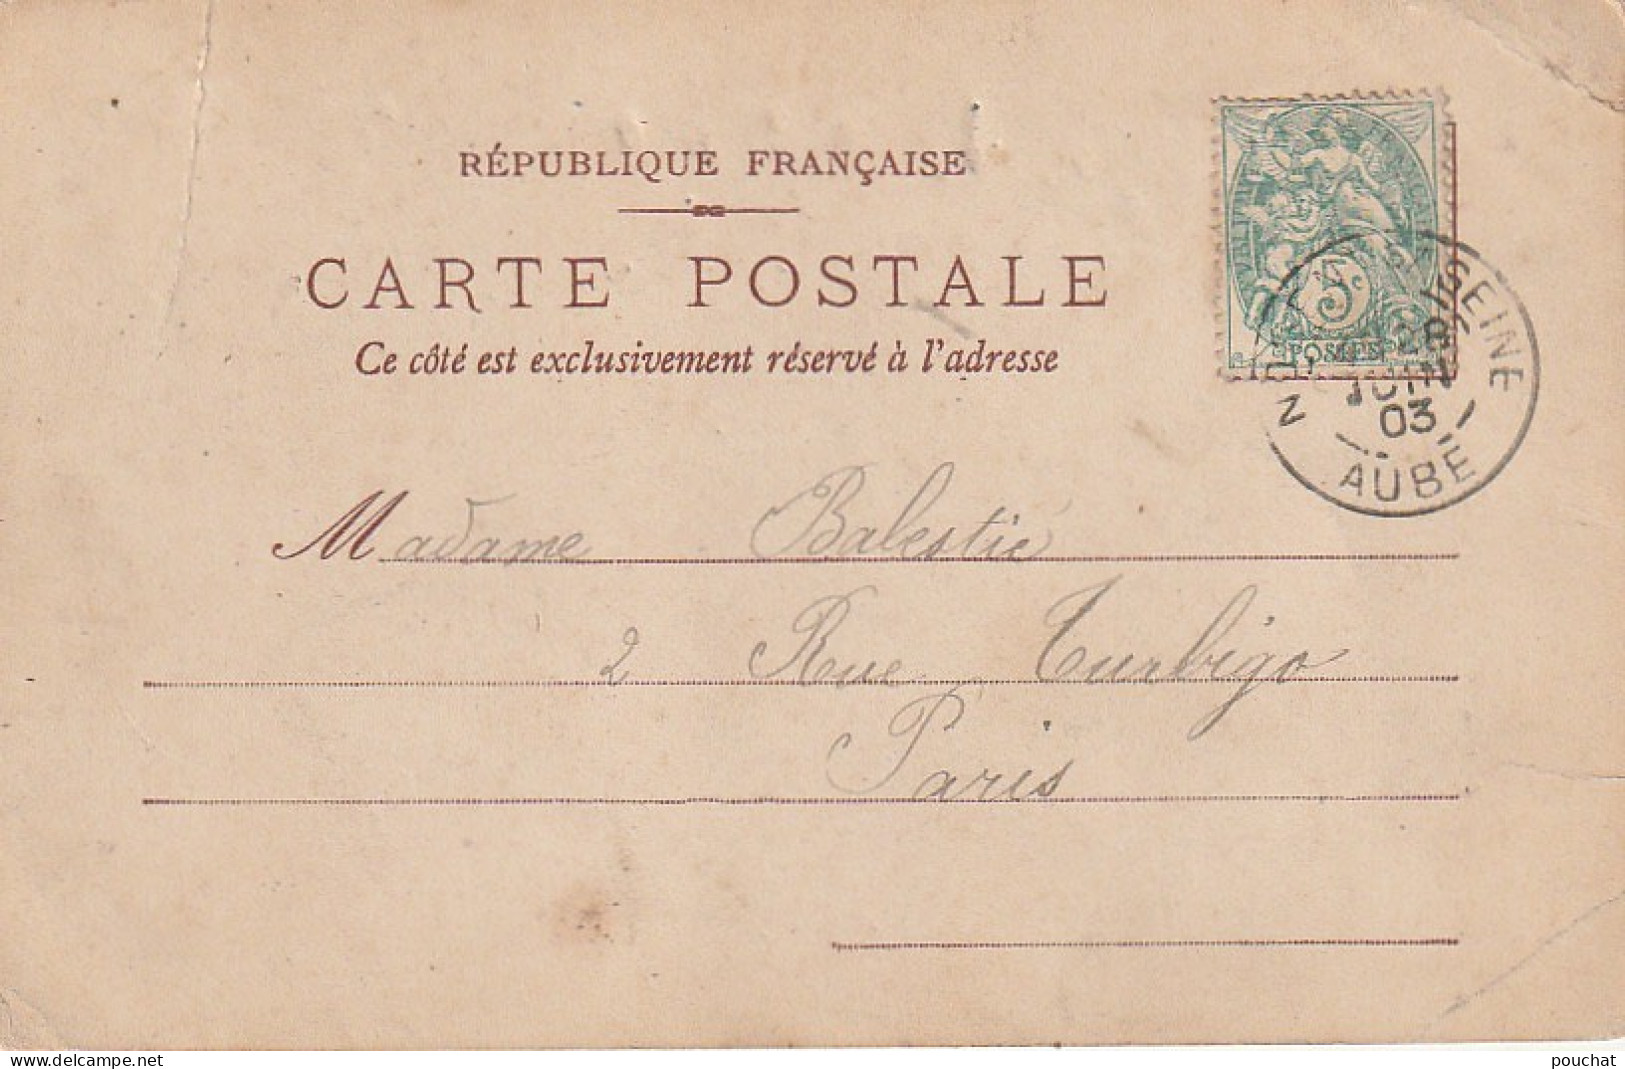 RÉPUBLIQUE FRANÇAISE
CARTE POSTALE
Ce côté est exclusivement réservé à l'adresse
POSTES
5c
SEINE
28
JUIN
03
AUBE
Madame Balestié
2 Rue Turbigo
Paris
delcampe.net
pouchat